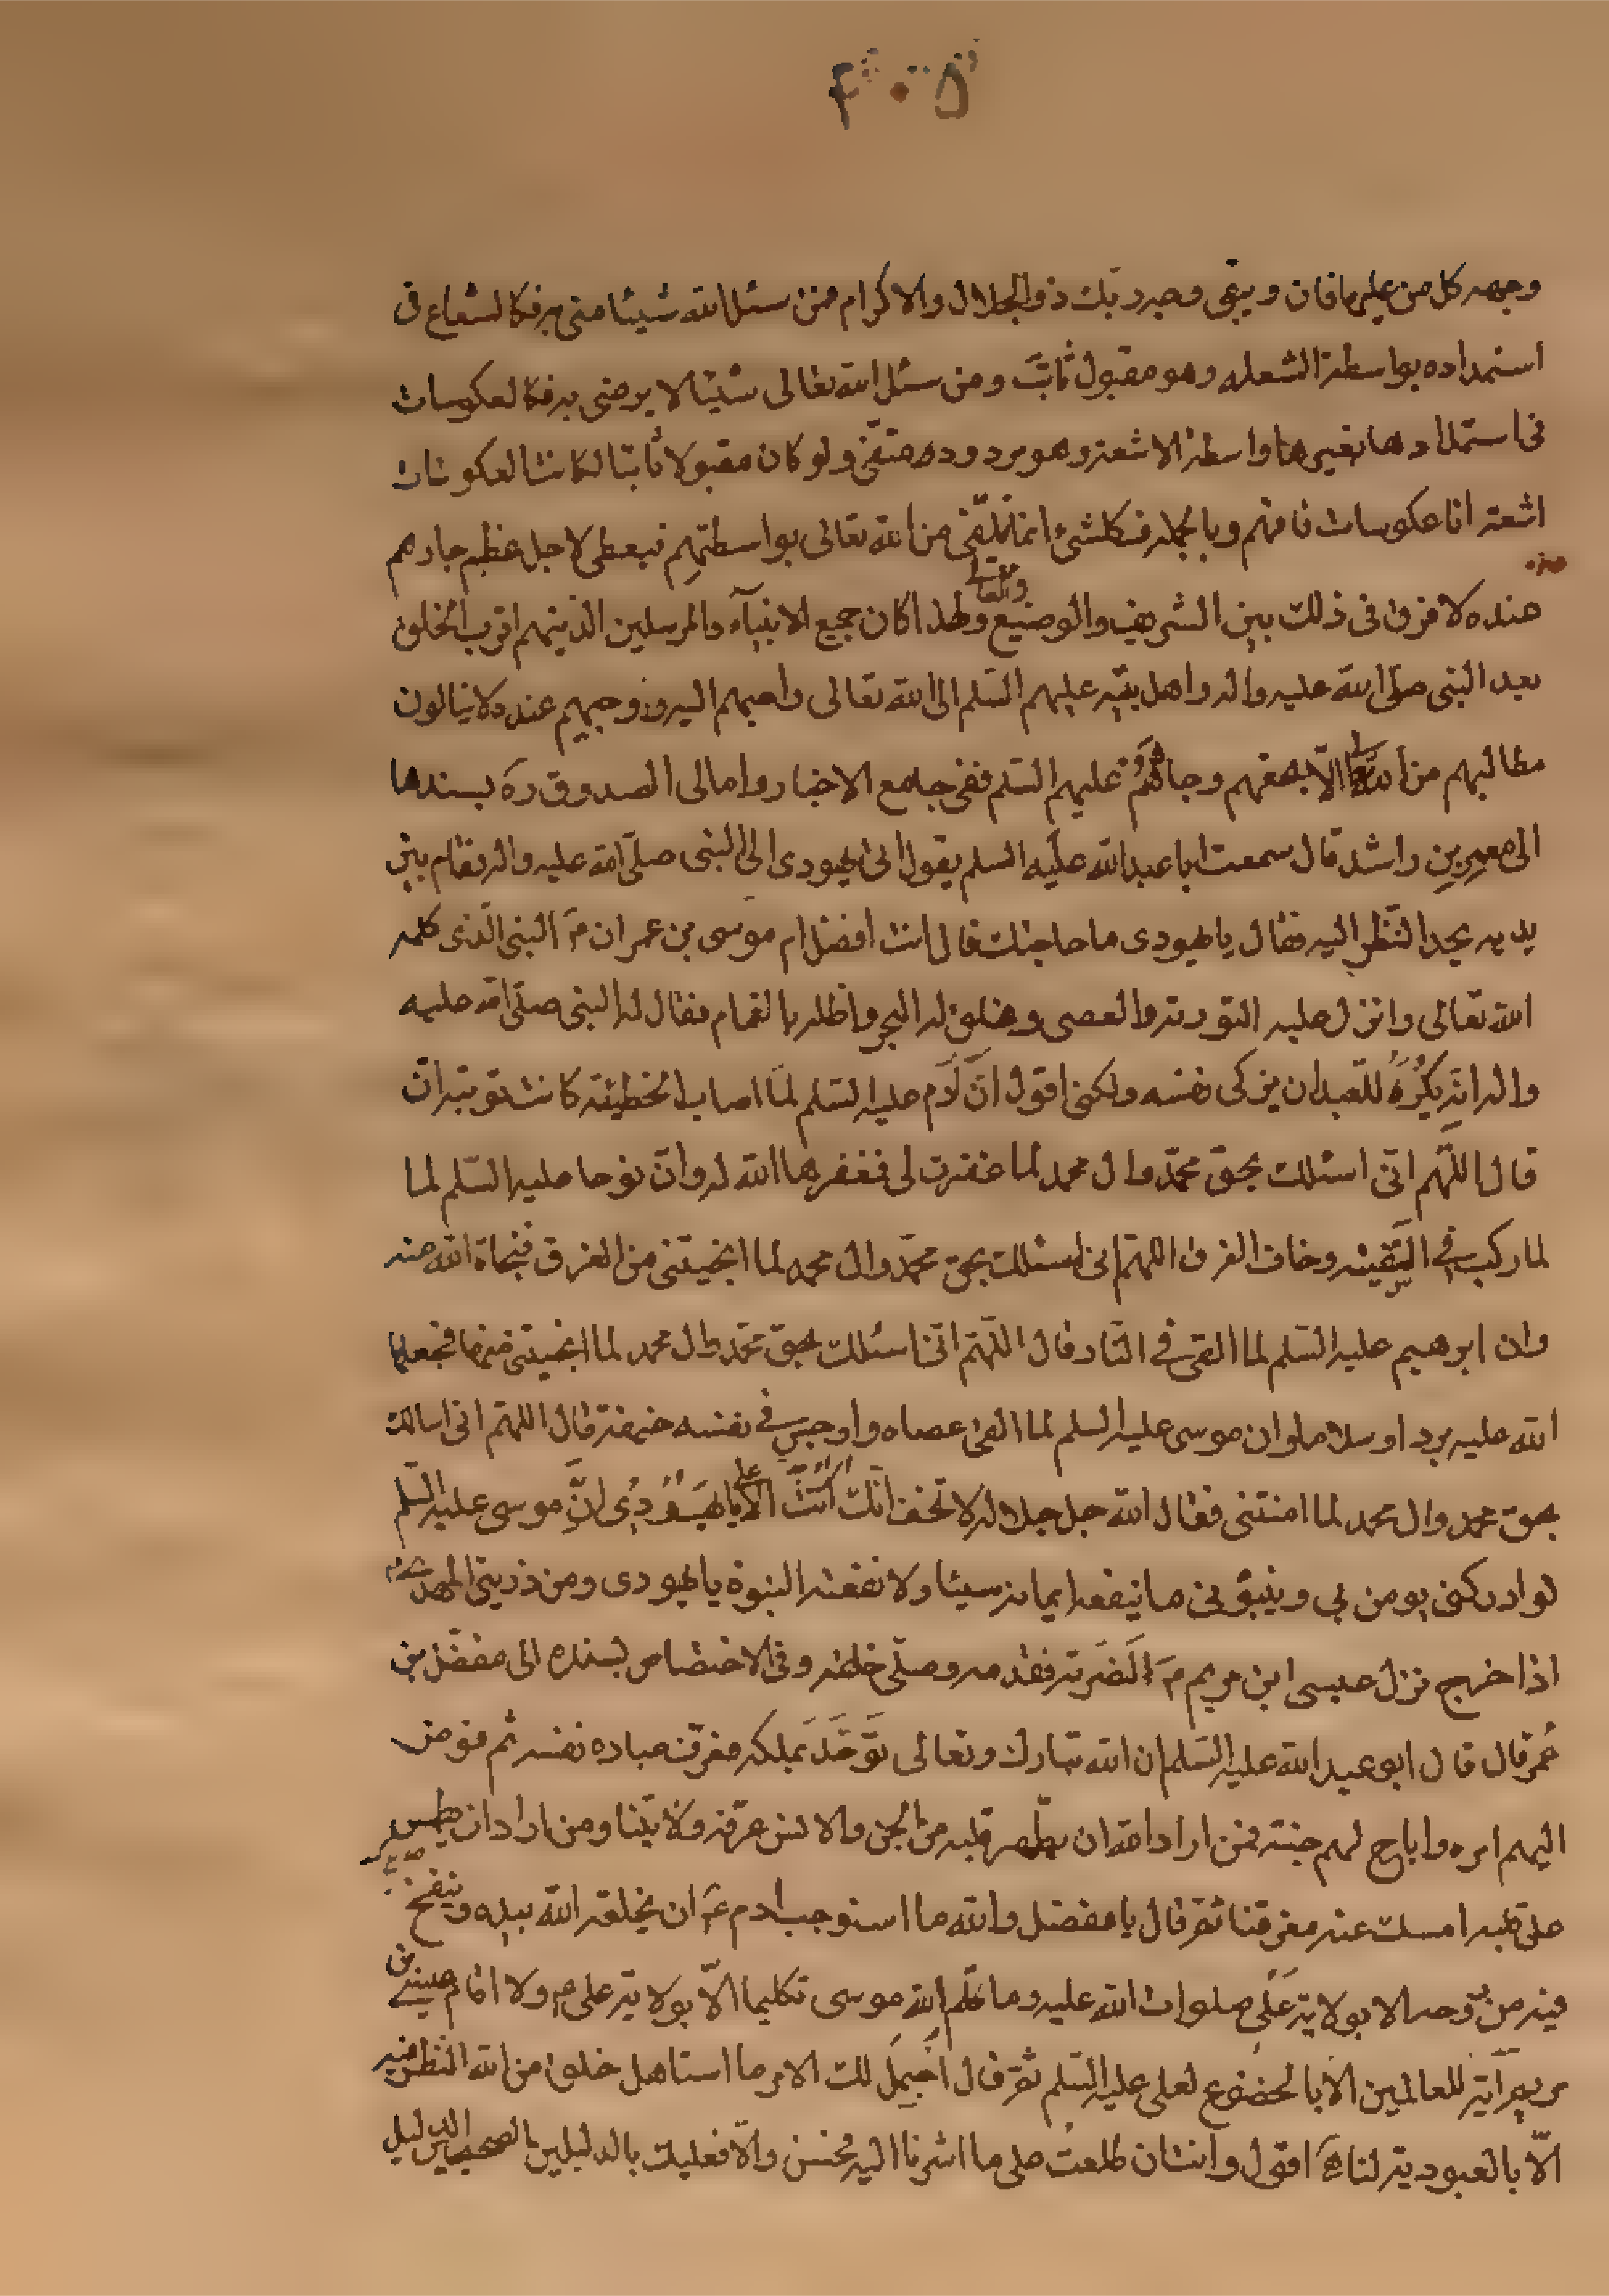 وجهه كل من عليها فان ويبقى وجه ربك ذو الجلال والاكرام فمن سئل الله شيئا منى به فكالشعاع فى
استمداده بواسطة الشعله وهو مقبول ثابت ومن سئل الله تعالى شيئا لا يرضى به فكالعكوسات
فى استمدادها بغيرها واسطة الاشعة وهو مردود متقى ولو كان مقبولا ثابتا لكانت العكوسات
اشعة انا عكوسات فافهم وبالجملة فكلشئ انما تلقى من الله تعالى بواسطتهم فيعطى لاجل عظيم جارهم
عنده لا فرق فى ذلك بين الشريف والوضيع ولهذا كان جميع الانبيآء والمرسلين الذينهم اقرب الخلق
بعد النبى صلى الله عليه واله واهل بيته عليهم السلم الى الله تعالى واحبهم اليه ووجيهم عنده لا ينالون
مطالبهم من الله الا بحقهم وجاههم عليهم السلم ففى جامع الاخبار وامالى الصدوق ره بسندها
الى معمر بن راشد قال سمعت ابا عبد الله عليه السلم يقول اتى يهودى الى النبى صلى الله عليه واله فقام بين
يديه يحد النظر اليه فقال يا يهودى ما حاجتك قال انت افضل ام موسى بن عمران ع النبى الذى كلمه
الله تعالى وانزل عليه التورية والعصى وفلق له البحر واظله بالغمام فقال له النبى صلى الله عليه
واله انه يكره للعبد ان يزكى نفسه ولكنى اقول ان آدم عليه السلم لما اصاب الخطيئة كانت توبته ان
قال اللهم انى اسئلك بحق محمد وال محمد لما غفرت لى فغفرها الله له وان نوحا عليه السلم لما
لما ركب فى السفينة وخاف الغرق اللهم انى اسئلك بحق محمد وال محمد لما انجيتنى من الغرق فنجاه الله عنه
وان ابرهيم عليه السلم لما القى فى النار قال اللهم انى اسئلك بحق محمد وال محمد لما انجيتنى منها فجعلها
الله عليه بردا وسلاما وان موسى عليه السلم لما القى عصاه واوجس فى نفسه خيفة قال اللهم انى اسالك
بحق محمد وال محمد لما امنتنى فقال الله جل جلاله لا تخف انك انت الاعلى يا يهودى ان موسى عليه السلم
لو ادركنى يومن بى وبنبوتى ما نفعه ايمانه شيئا ولا نفعته النبوة يا يهودى ومن ذريتى المهدى
اذا خرج نزل عيسى ابن مريم ع لنصرته فقدمه وصلى خلفه وفى الاختصاص بسنده الى مفضل بن
عمر قال قال ابو عبد الله عليه السلم ان الله تبارك وتعالى توحد بملكه فعرف عباده نفسه ثم فوض
اليهم امره واباح لهم جنته فمن اراد الله ان يطهر قلبه من الجن والانس عرفه ولايتنا ومن اراد ان يطمس
على قلبه امسك عنه معرفتنا ثم قال يا مفضل والله ما استوجب ادم ع ان يخلقه الله بيده وينفخ
فيه من روحه الا بولاية على صلوات الله عليه وما كلم الله موسى تكليما الا بولاية على م ولا اقام عيسى بن
مريم آية للعالمين الا بالخضوع لعلى عليه السلم ثم قال اجمل لك الامر ما استاهل خلق من الله النظر اليه
الا بالعبودية لنا ه اقول وانت ان طلعت على ما اشرنا اليه فحسن والا فعليك بالدليلين الصحيحين الدليل